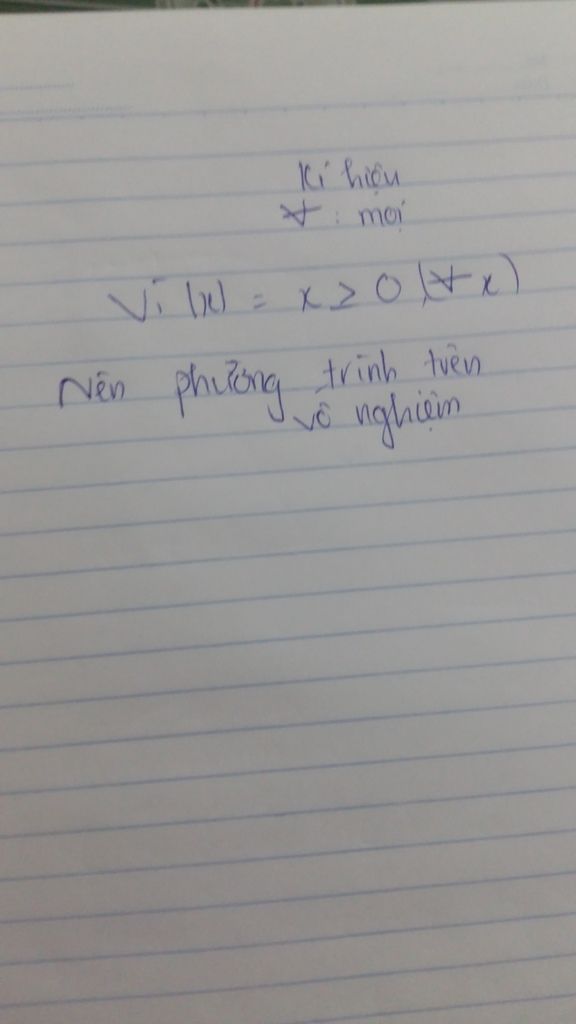 Kí hiệu
∀ : mọi
Vì |x| = x ≥ 0 (∀ x)
Nên phương trình trên
vô nghiệm